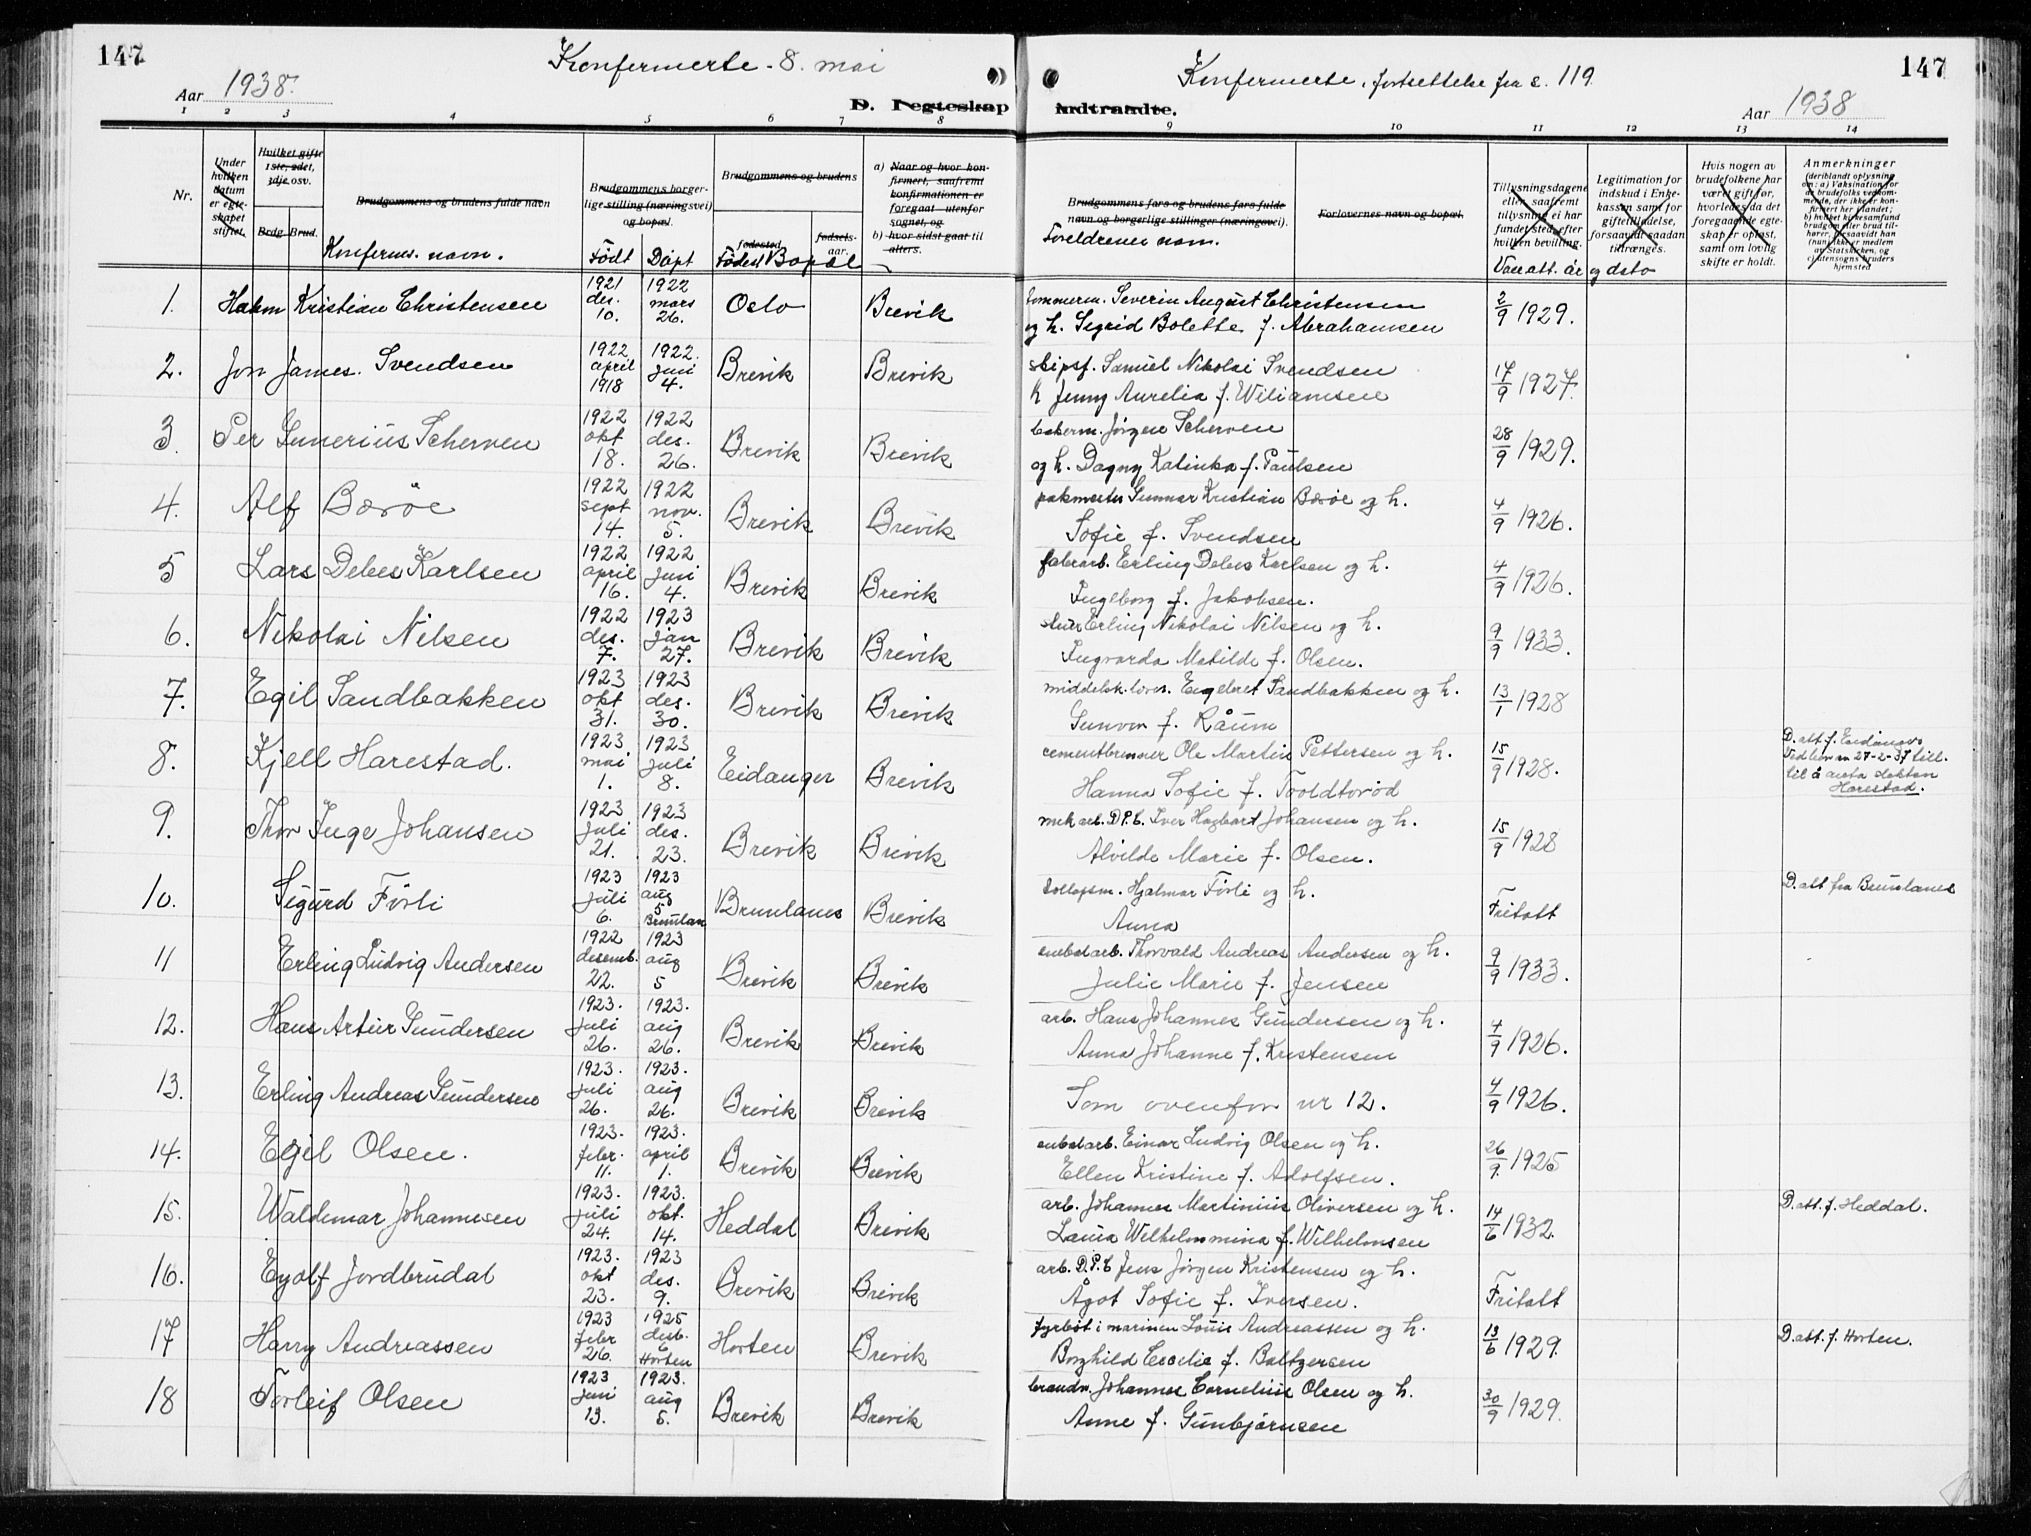 147
Konfermerte - 8. mai
Aar 1938.
Konfermerte, fortsettelse fra s. 119.
147
Aar 1938
1 2 3 4 5 6 7 8 9 10 11 12 13 14
Nr.
Under hvilken datum er egteskapet stiftet.
Hvilket gifte 1ste, 2det, 3dje osv.
Brdg. Brud.
Brudgommens og brudens fulde navn
Konferms. navn.
Brudgommens borgerlige stilling (næringsvei) og bopæl.
Født Døpt
Brudgommens og brudens
fødested fødselsaar.
Fødest Bopæl
a) Naar og hvor konfirmert, saafremt konfirmationen er foregaat utenfor sognet, og
b) hvor sidst gaat til alters.
Brudgommens fars og brudens fars fulde navn og borgerlige stillinger (næringsvei).
Foreldrenes navn.
Forlovernes navn og bopæl.
Tillysningsdagene eller saafremt tillysning ei har fundet sted, efter hvilken bevilling.
Vac. att. år og dato
Legitimation for indskud i Enkekassen samt for giftetilladelse, forsaavidt saadan tiltrænges.
Hvis nogen av brudefolkene har været gift før, hvorledes da det foregaaende egteskap er opløst, samt om lovlig skifte er holdt.
Anmerkninger
1. Hakon Kristian Christensen 1921 des. 10. 1922 mars 26. Oslo Brevik
tømmerm. Severin August Christensen
og h. Sigrid Bolette f. Abrahamsen 2/9 1929.
2. Jon James Svendsen 1922 april 1918 1922. juni 4. Brevik Brevik
skipsf. Samuel Nikolai Svendsen
h Jenny Aurelia f. Wiliamsen 17/9 1927.
3. Per Gunerius Scherven 1922 okt 18. 1922 des. 26. Brevik Brevik
bakerm. Jørgen Scherven
og h. Dagny Katinka f. Paulsen 28/9 1929.
4. Alf Børøe 1922 sept 14. 1922 nov. 5. Brevik Brevik
pakmester Gunnar Kristian Børøe og h.
Sofie f. Svendsen 4/9 1926.
5 Lars Debes Karlsen 1922 april 16. 1922 juni 4. Brevik Brevik
fabrarb. Erling Debes Karlsen og h.
Ingeborg f. Jakobsen. 4/9 1926.
6. Nikolai Nilsen 1922 des. 7. 1923 jan 27. Brevik Brevik
Erling Nikolai Nilsen og h.
Ingvarda Matilde f. Olsen. 9/9 1933.
7. Egil Sandbakken 1923 okt 31. 1923 des. 30. Brevik Brevik
middelsk. lærer. Engebret Sandbakken og h.
Gunvor f. Råum 13/1 1928
8. Kjell Harestad. 1923 mai 1. 1923 juli 8. Eidanger Brevik
cementbrenner Ole Martin Pettersen og h.
Hanna Sofie f. Tvoldtorød 15/9 1928.
D. att. f. Eidanger.
27-2-37 till.
til å anta slektsn
Harestad.
9. Thor Inge Johansen 1923 juli 21. 1923 des. 23. Brevik Brevik
mek arb. D P. C. Iver Hagbart Johansen og h.
Alvilde Marie f. Olsen. 15/9 1928
10. Sigurd Førli 1923 juli 6. 1923 aug 5 Brunlan Brunlanes Brevik
tollopsm. Hjalmar Førli og h.
Anna Fritatt
D. att fra Brunlanes
11 Erling Ludvig Andersen 1922 desemb. 22. 1923 aug 5 Brevik Brevik
Thorvald Andreas Andersen og h.
Julie Marie f. Jensen 9/9 1933.
12. Hans Artur Gundersen 1923. juli 26. 1923. aug 26. Brevik Brevik
arb. Hans Johannes Gundersen og h.
Anna Johanne f. Kristensen 4/9 1926.
13. Erling Andreas Gundersen 1923. juli 26. 1923. aug 26. Brevik Brevik
Som ovenfor nr 12. 4/9 1926.
14. Egil Olsen. 1923. febr. 11. 1923. april 1. Brevik Brevik
Einar Ludvig Olsen og h.
Ellen Kristine f. Adolfsen. 26/9. 1925
15. Waldemar Johannesen 1923. juli 24. 1923. okt. 14. Heddal Brevik
arb. Johannes Martinius Oliversen og h.
Laura Wilhelmmina f. Wilhelmsen 14/6 1932.
D. att. f. Heddal.
16. Eyolf Jordbrudal 1923. okt 23. 1923 des. 9. Brevik Brevik
arb. D.P.C Jens Jørgen Kristensen og h.
Ågot Sofie f. Iversen. Fritatt
17 Harry Andreassen 1923 febr 26. 1925 desb. 6 Horten Horten Brevik
fyrbøt i marinen Louis Andreassen og h.
Borghild Cecilie f. Baltzersen 13/6 1929.
D. att. f. Horten.
18 Torleif Olsen 1923 juni 13. 1923. aug 5. Brevik Brevik
Johannes Cornelius Olsen og h.
Anne f. Gunbjørnsen 30/9 1929.